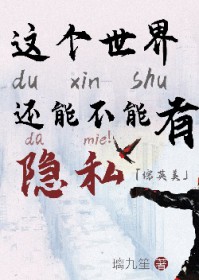 这个世界
du xin shu
还能不能有
da mie!
隐私
「综英美」
璃九笙 著